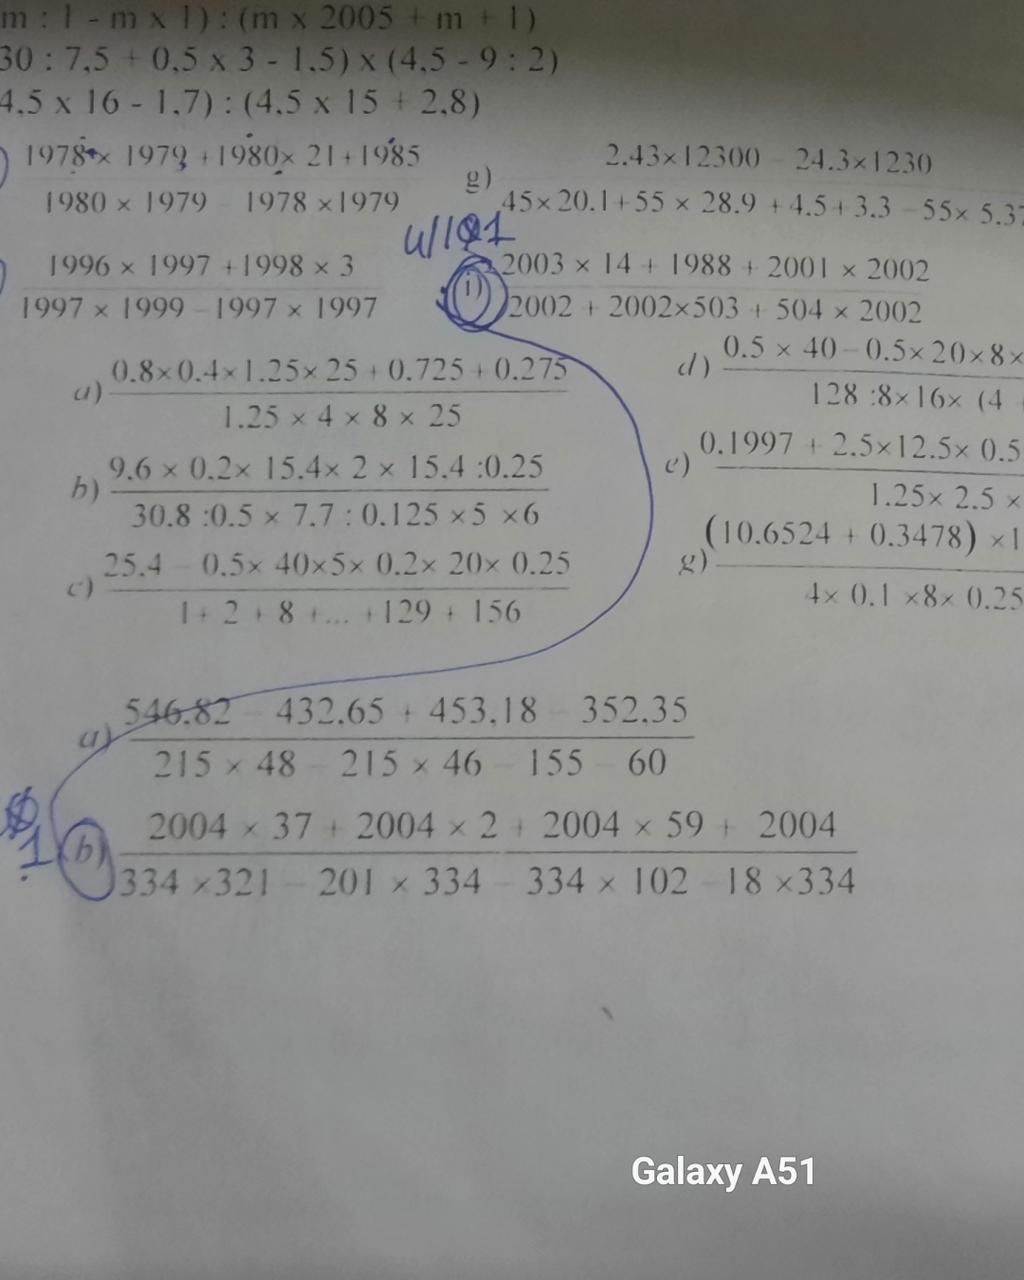 m : 1 - m x 1) : (m x 2005 + m + 1)
30 : 7,5 + 0,5 x 3 - 1,5) x (4,5 - 9 : 2)
4,5 x 16 - 1,7) : (4,5 x 15 + 2,8)
) 1978 × 1979 + 1980× 21+1985
1980 × 1979 - 1978 ×1979
g) 2.43×12300 - 24.3×1230
45×20.1+55 × 28.9 + 4.5+3.3 -55× 5.37
) 1996 × 1997 +1998 × 3
1997 × 1999 -1997 × 1997
i) 2003 × 14 + 1988 + 2001 × 2002
2002 + 2002×503 + 504 × 2002
a) 0.8×0.4×1.25×25 + 0.725 + 0.275
1.25 × 4 × 8 × 25
b) 9.6 × 0.2× 15.4× 2 × 15.4 :0.25
30.8 :0.5 × 7.7 : 0.125 ×5 ×6
c) 25.4 - 0.5× 40×5× 0.2× 20× 0.25
1+ 2 + 8 +... +129 + 156
d) 0.5 × 40 - 0.5× 20×8×
128 :8×16× (4
e) 0.1997 + 2.5×12.5× 0.5
1.25× 2.5 ×
g) (10.6524 + 0.3478) ×1
4× 0.1 ×8× 0.25
a) 546.82 - 432.65 + 453.18 - 352.35
215 × 48 - 215 × 46 - 155 - 60
1
b) 2004 × 37 + 2004 × 2 + 2004 × 59 + 2004
334 ×321 - 201 × 334 - 334 × 102 -18 ×334
Galaxy A51